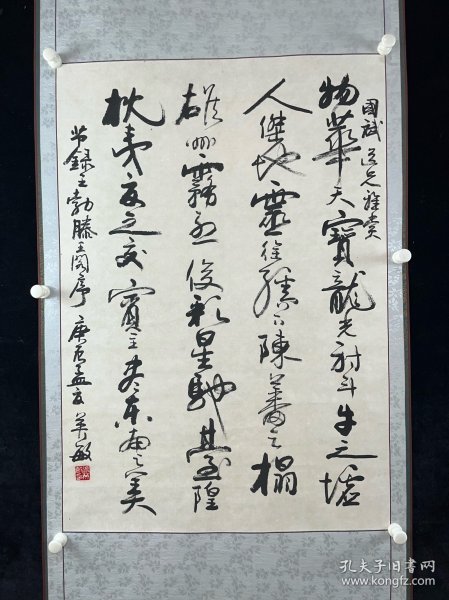 國斌道兄雅賞
物華天寶龍光射牛斗之墟
人傑地靈徐孺下陳蕃之榻
雄州霧列俊彩星馳臺隍
枕夷夏之交賓主盡東南之美
节録王勃滕王阁序 庚辰孟夏 吴敏
孔夫子旧书网
www.kongfz.com